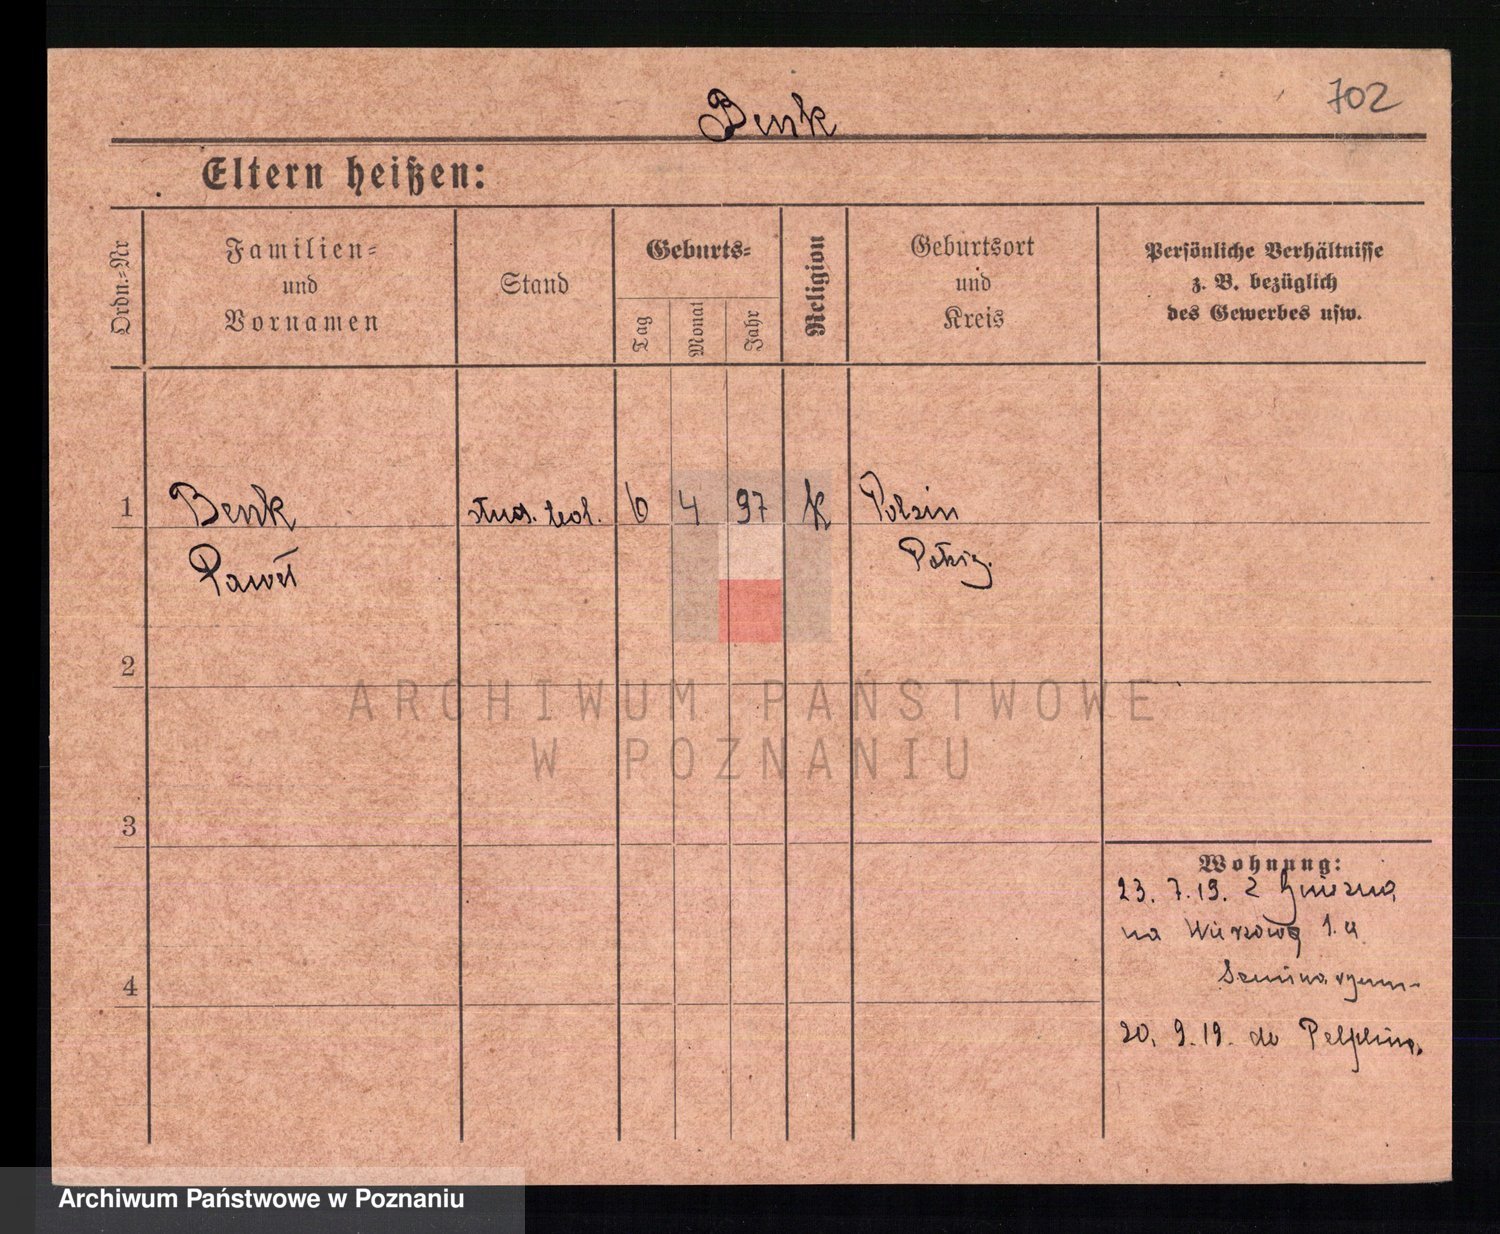 702
Benk
Eltern heißen:
Ordn.-Nr
Familien-
und
Vornamen
Stand
Geburts-
Tag
Monat
Jahr
Religion
Geburtsort
und
Kreis
Persönliche Verhältnisse
z. B. bezüglich
des Gewerbes usw.
1 Benk stud. teol. 6 4 97 k Polzin
Paweł
2
3
4
Wohnung:
23. 7. 19. z Gniezna
na Wieżową 1. u
Seminaryum
20. 9. 19. do Pelplina.
ARCHIWUM PAŃSTWOWE
W POZNANIU
Archiwum Państwowe w Poznaniu